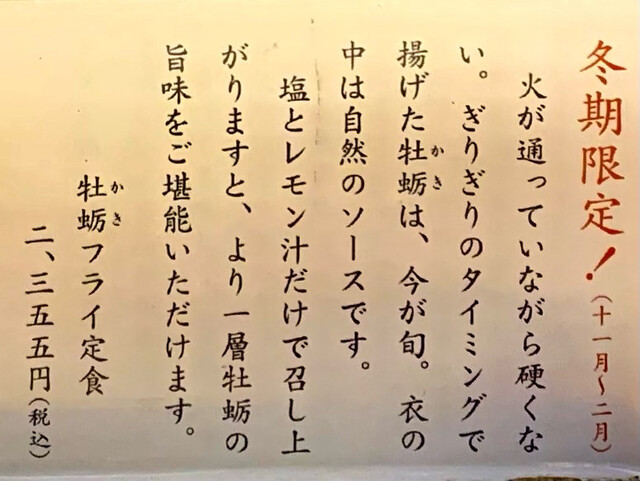 冬期限定！（十一月～二月）
火が通っていながら硬くな
い。ぎりぎりのタイミングで
揚げた牡蛎は、今が旬。衣の
かき
中は自然のソースです。
塩とレモン汁だけで召し上
がりますと、より一層牡蛎の
旨味をご堪能いただけます。
牡蛎フライ定食
かき
二、三五五円（税込）